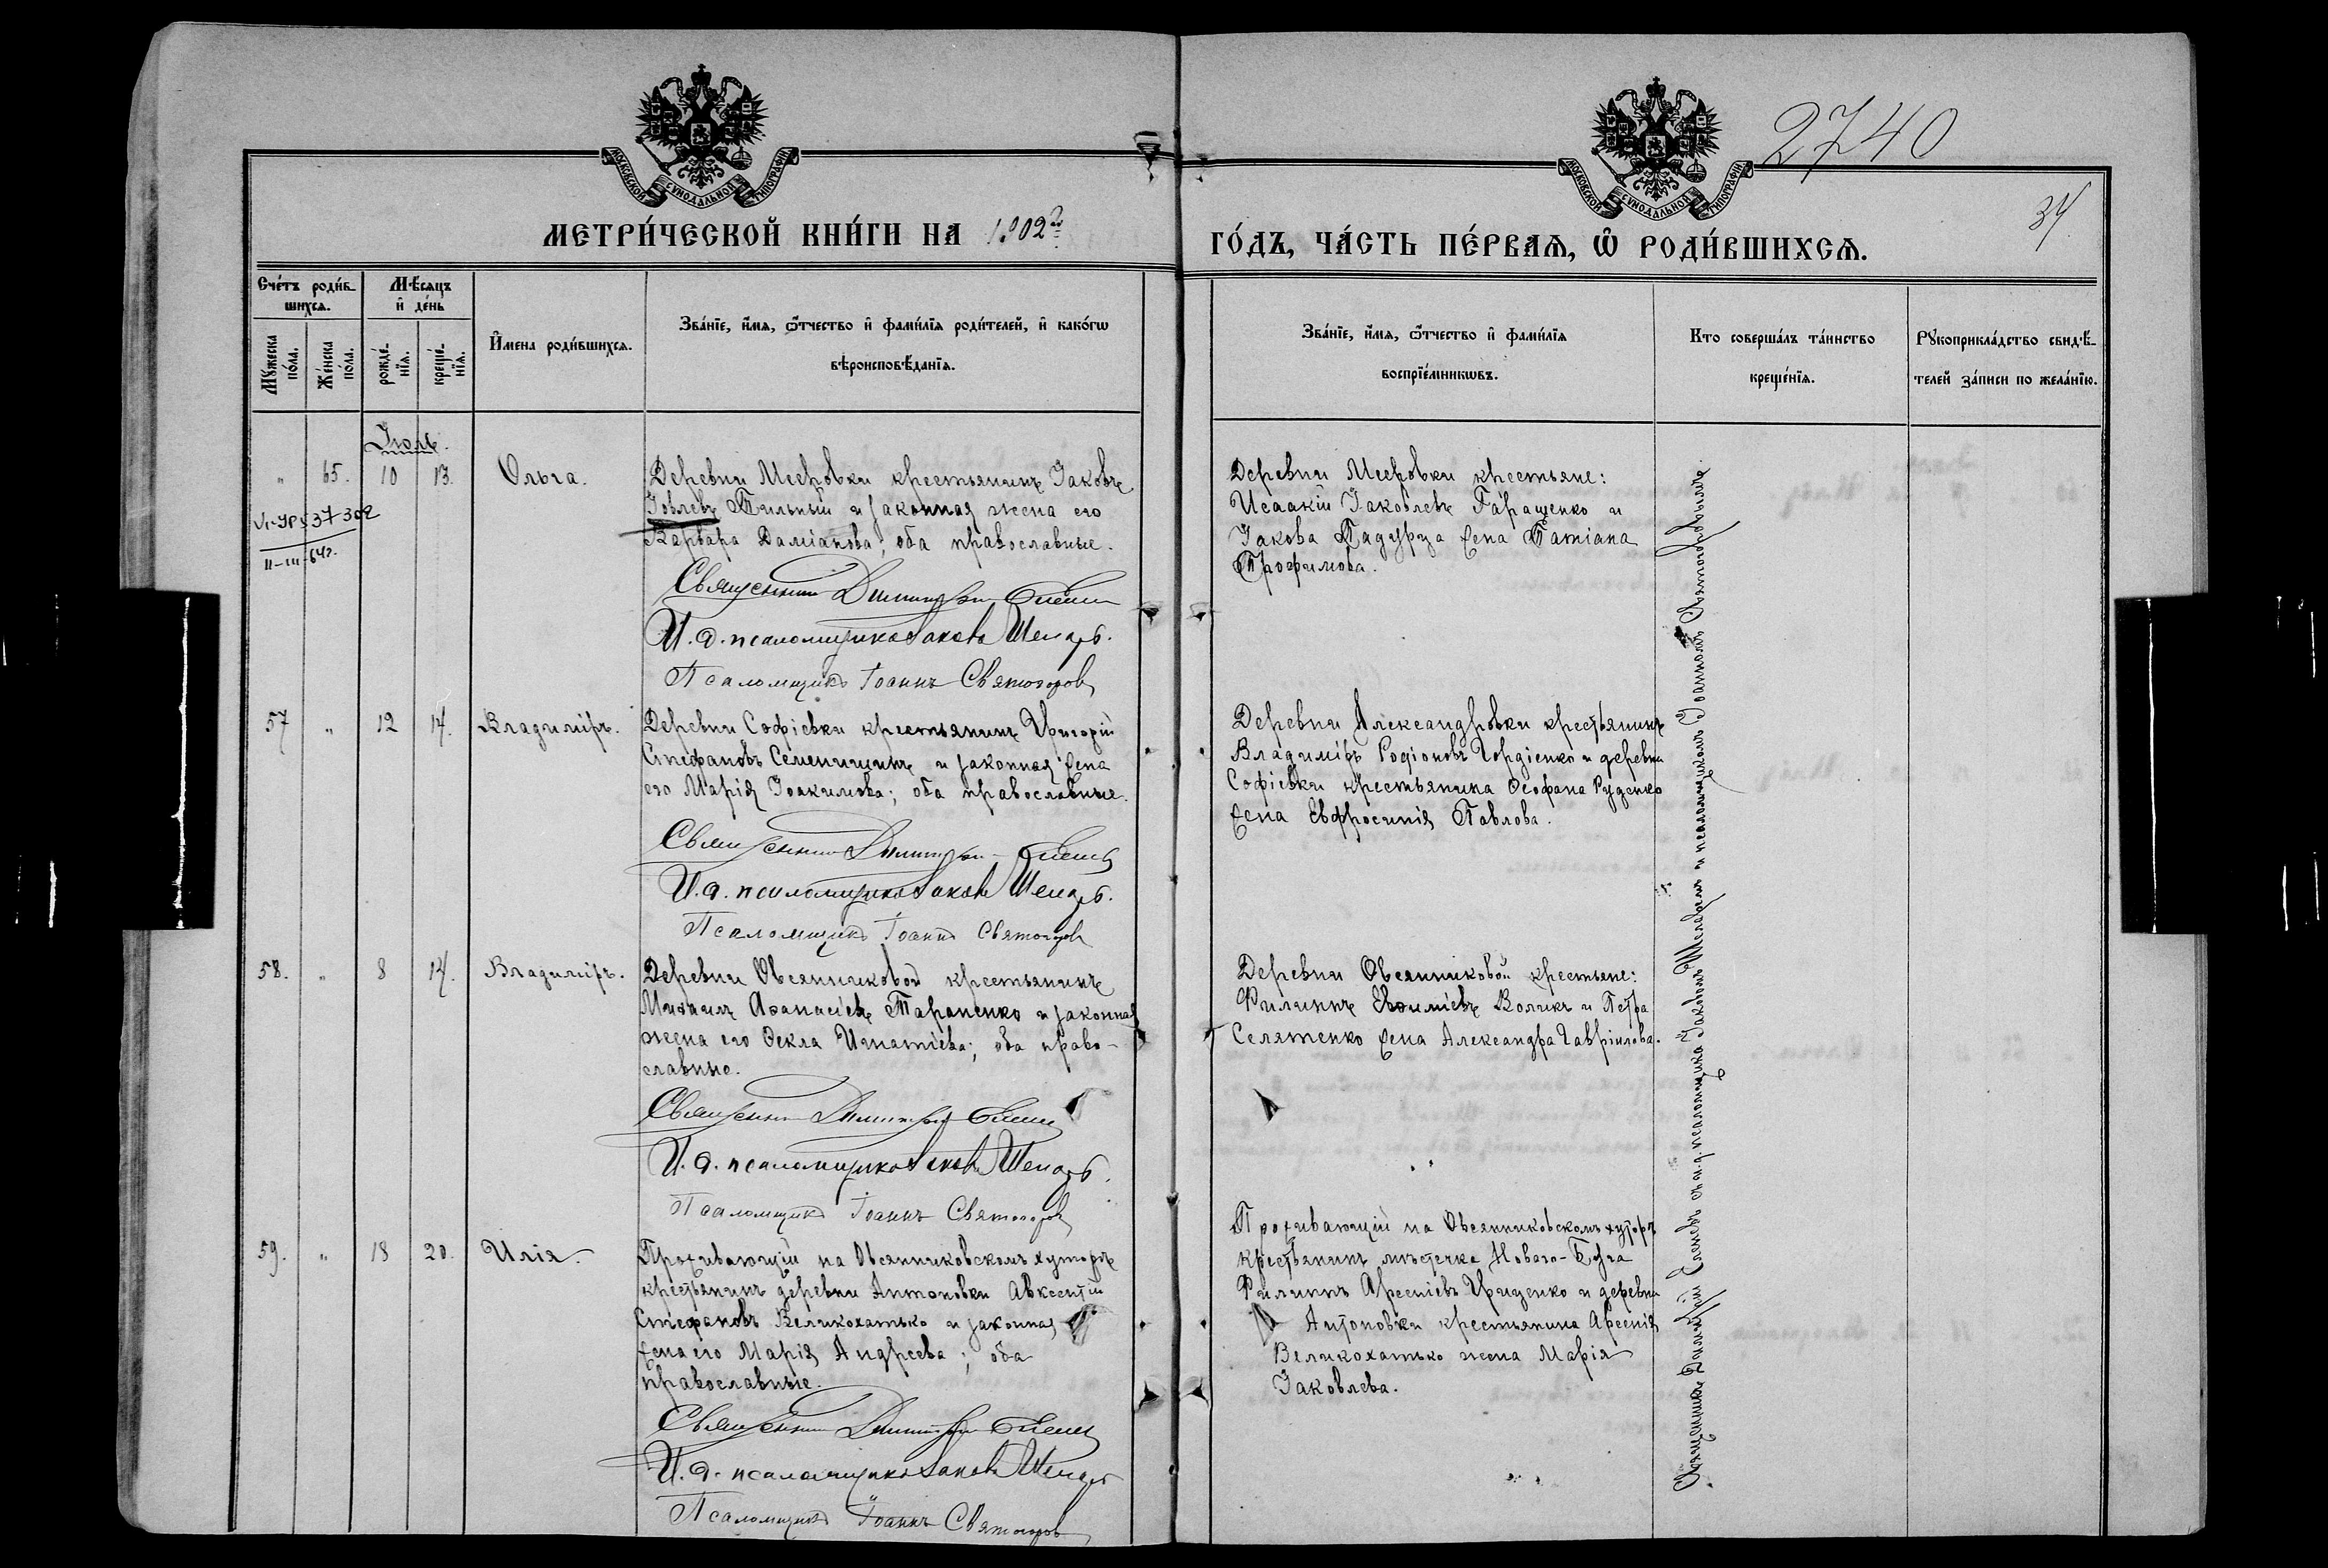 МОСКОВСКОЙ СѴНОДАЛЬНОЙ ТИПОГРАФІИ
МОСКОВСКОЙ СѴНОДАЛЬНОЙ ТИПОГРАФІИ
2740
34
МЕТРИ́ЧЕСКОЙ КНИ́ГИ НА 1902 г.
ГО́ДЪ, ЧА́СТЬ ПЕ́РВАѦ, Ѡ҆ РОДИ́ВШИХСѦ.
Сче́тъ роди́в-
шихсѧ.
Мꙋ́жеска по́ла.
Же́нска по́ла.
Мѣ́сѧцъ
и҆ де́нь
рожде́-
нїѧ.
креще́-
нїѧ.
И҆мена роди́вшихсѧ.
Зва́нїе, и҆́мѧ, ѻ҆́тчество и҆ фами́лїѧ роди́телей, и҆ како́гѡ
вѣроисповѣ́данїѧ.
Зва́нїе, и҆́мѧ, ѻ҆́тчество и҆ фами́лїѧ
воспрїе́мникѡвъ.
Кто соверша́лъ та́инство
креще́нїѧ.
Рꙋкоприкла́дство свидѣ́-
телей за́писи по жела́нїю.
Іюль.
" 65. 10 13. Ольга.
Деревни Мееровки крестьянинъ Іаковъ
Іовлевъ Пильный и законная жена его
Варвара Даміанова; оба православные.
Священникъ Димитрій
И. д. псаломщика Іаковъ
Псаломщикъ Іоаннъ Святогоровъ
37302
II-III-64г.
Деревни Мееровки крестьяне:
Исаакій Іаковлевъ Гаращенко и
Іакова Падурца жена Татіана
Трофимова.
57 " 12 14. Владиміръ.
Деревни Софіевки крестьянинъ Григорій
Стефановъ Семенишинъ и законная жена
его Марія Іоакимова; оба православные.
Священникъ Димитрій
И. д. псаломщика Іаковъ
Псаломщикъ Іоаннъ Святогоровъ
Деревни Александровки крестьянинъ
Владиміръ Родіоновъ Гордіенко и деревни
Софіевки крестьянина Ѳеофана Руденко
жена Евфросинія Павлова.
58. " 8 14. Владиміръ.
Деревни Овсянниковой крестьянинъ
Михаилъ Аѳанасіевъ Тараненко и законная
жена его Ѳекла Игнатіева; оба право-
славные.
Священникъ Димитрій
И. д. псаломщика Іаковъ
Псаломщикъ Іоаннъ Святогоровъ
Деревни Овсянниковой крестьяне:
Филиппъ Евѳиміевъ Воликъ и Петра
Селятенко жена Александра Гавріилова.
59. " 18 20. Илія.
Проживающій на Овсянниковскомъ хуторѣ
крестьянинъ деревни Антоновки Авксентій
Стефановъ Великохатько и законная
жена его Марія Андреева; оба
православные.
Священникъ Димитрій
И. д. псаломщика Іаковъ
Псаломщикъ Іоаннъ Святогоровъ
Проживающій на Овсянниковскомъ хуторѣ
крестьянинъ мѣстечка Новаго-Буга
Филиппъ Арсеніевъ Гриценко и деревни
Антоновки крестьянина Арсенія
Великохатько жена Марія
Іаковлева.
Священникъ Димитрій съ и. д. псаломщика Іаковомъ и псаломщикомъ Іоанномъ Святогоровымъ.